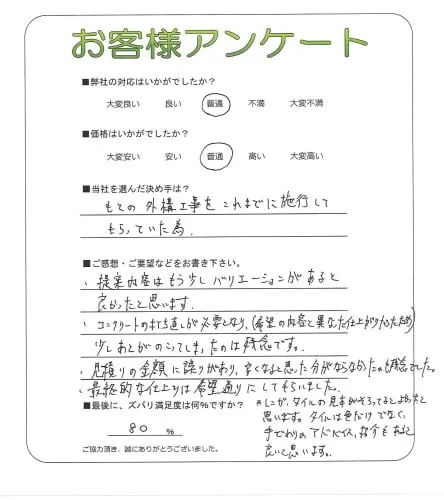 お客様アンケート
■弊社の対応はいかがでしたか？
大変良い 良い 普通 不満 大変不満
■価格はいかがでしたか？
大変安い 安い 普通 高い 大変高い
■当社を選んだ決め手は？
もとの外構工事をこれまでに施行して
もらっていた為.
■ご感想・ご要望などをお書き下さい。
・提案内容はもう少しバリエーションがあると
良かったと思います.
・コンクリートの打ち直しが必要となり、(希望の内容と異なった仕上がりだったため)
少しあとがのこってしまったのは残念です。
・見積りの金額に誤りがあり、安くなると思った分がならなかったのも残念でした。
・最終的な仕上りは希望通りにしてもらいました。
■最後に、ズバリ満足度は何%ですか？
80 %
ご協力頂き、誠にありがとうございました。
*タイルの見本がそろってるとよかったと
思います。タイルは色だけでなく、
手ざわりのアドバイス、紹介もあると
良いと思います。